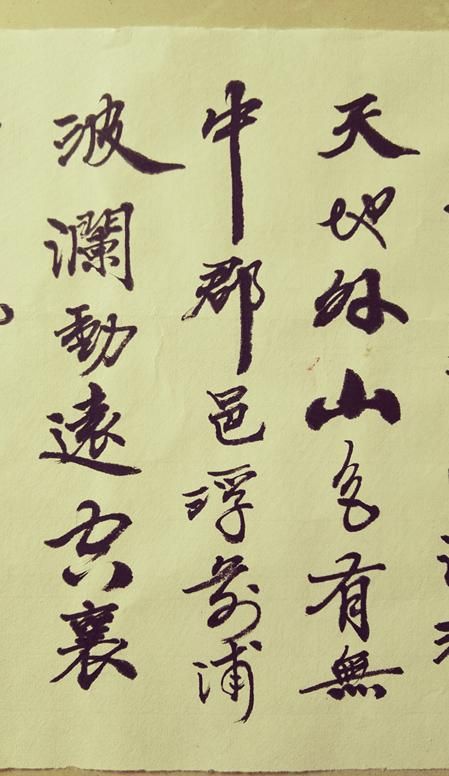 天地外山色有無
中郡邑浮前浦
波瀾動遠空襄